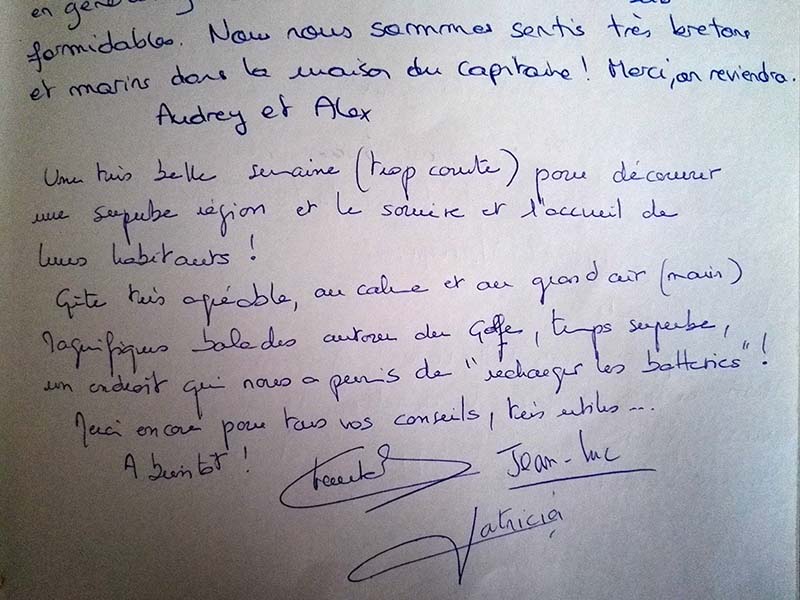 en général
formidables. Nous nous sommes sentis très bretons
et marins dans la maison du Capitaine ! Merci, on reviendra.
Audrey et Alex
Une très belle semaine (trop courte) pour découvrir
une superbe région et le sourire et l'accueil de
leurs habitants !
Gîte très agréable, au calme et au grand air (marin)
Magnifiques balades autour du Golfe, temps superbe,
un endroit qui nous a permis de "recharger les batteries" !
Merci encore pour tous vos conseils, très utiles...
A bientôt !
Jean-Luc
Patricia